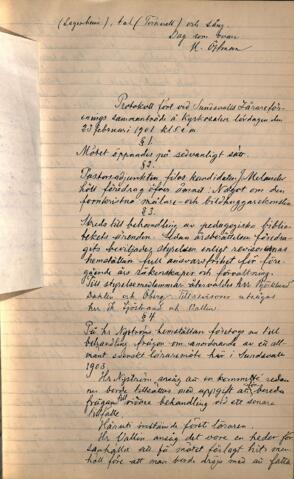 (Lagerheim), tal (Törnvall) och sång.
Dag som ovan
Protokoll fört vid Sundsvalls Lärareför-
enings sammanträde å Kyrkosalen lördagen den
23 februari 1901 kl.
§ 1.
Mötet öppnades på sedvanligt sätt.
§ 2.
Pastorsadjunkten filos. kandidaten J. Melander
höll föredrag öfver ämnet: Något om den
fornkristna målare- och bildhuggarekonsten.
§ 3.
Skreds till behandling av pedagogiska biblio-
tekets ärenden. Sedan årsberättelsen föredra-
gits beviljades styrelsen enligt revisorernas
hemställan full ansvarsfrihet för före-
gående års räkenskaper och förvaltning.
Till styrelsemedlemmar återvaldes hrr
Dahlén och Öberg. Till revisorer utsågos
hrr Sjöstrand och Vallin.
§ 4
På hr Nyströms hemställan företogs till
behandling frågan om anordnande av ett all-
mänt svenskt läraremöte här i Sundsvall
1903.
Hr Nyström ansåg att en kommitté redan
nu borde tillsättas med uppgift att bereda
frågan till vidare behandling vid ett senare
tillfälle.
instämde först läraren
Hr Vallin ansåg det vore en heder för
samhället att få mötet förlagt hit, men
höll före att man borde dröja med att fatta